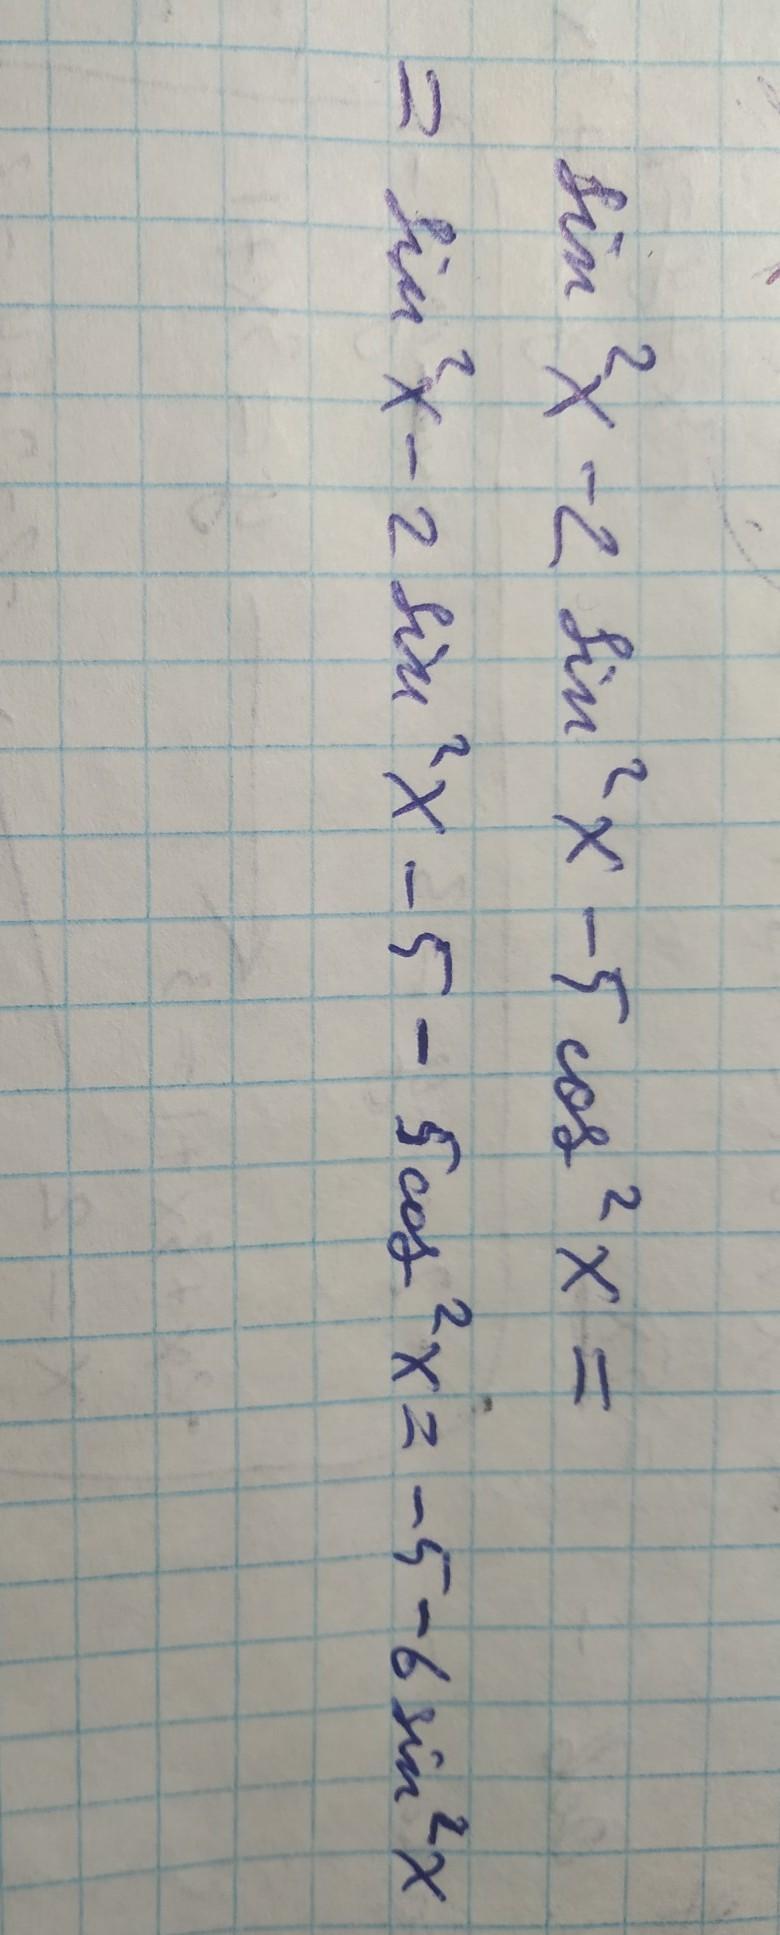 sin²x - 2 sin²x - 5 cos²x =
= sin²x - 2 sin²x - 5 - 5 cos²x = -5 - 6 sin²x